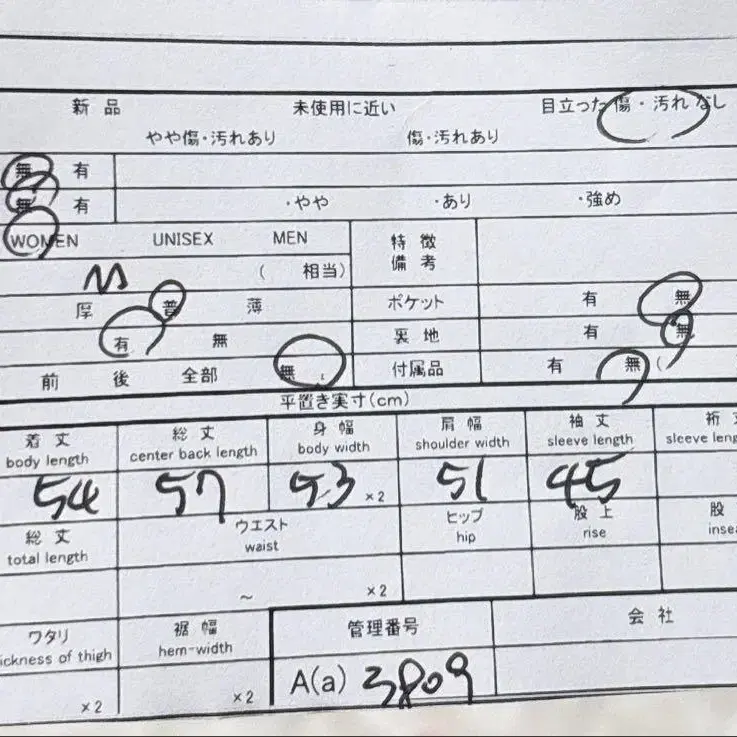 新品 未使用に近い 目立った傷・汚れなし
やや傷・汚れあり 傷・汚れあり
無 有
無 有 ・やや ・あり ・強め
WOMEN UNISEX MEN 特徴
備考
M ( 相当)
厚 普 薄 ポケット 有 無
有 無 裏地 有 無
前 後 全部 無 付属品 有 無 (
平置き実寸(cm)
着丈 総丈 身幅 肩幅 袖丈 裄
body length center back length body width shoulder width sleeve length sleeve leng
54 57 53 ×2 51 45
総丈 ウエスト ヒップ 股上 股
total length waist hip rise inse
~ ×2
ワタリ 裾幅 管理番号 会社
ickness of thigh hem-width
×2 ×2 A(a) 3809